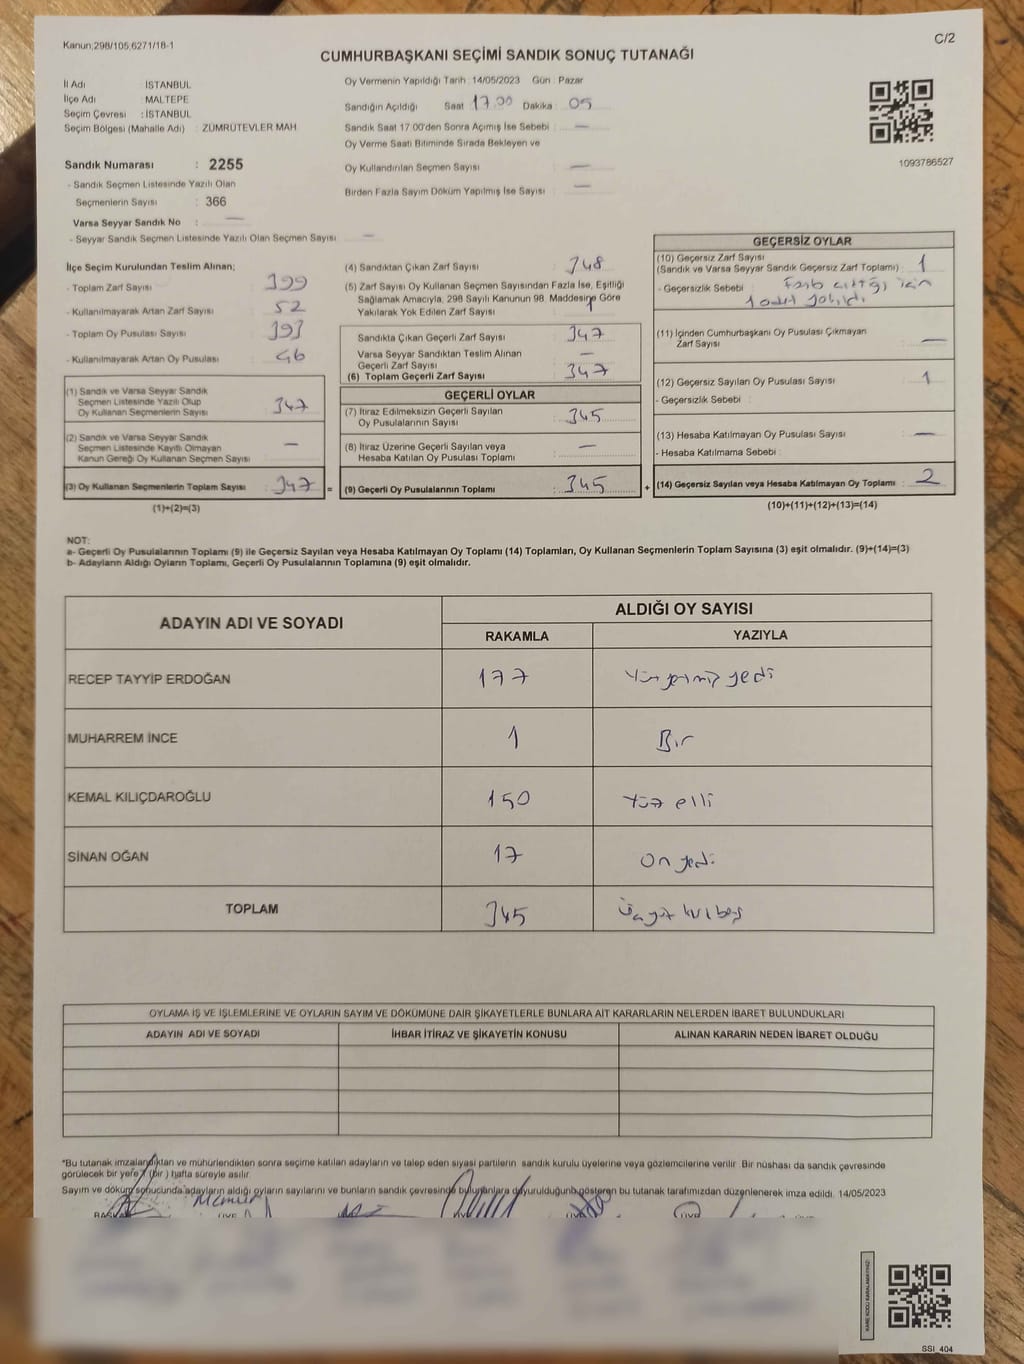 Kanun;298/105,6271/18-1
C/2
CUMHURBAŞKANI SEÇİMİ SANDIK SONUÇ TUTANAĞI
İl Adı : İSTANBUL
İlçe Adı : MALTEPE
Seçim Çevresi : İSTANBUL
Seçim Bölgesi (Mahalle Adı) : ZÜMRÜTEVLER MAH
Sandık Numarası : 2255
- Sandık Seçmen Listesinde Yazılı Olan
Seçmenlerin Sayısı : 366
Varsa Seyyar Sandık No : —
- Seyyar Sandık Seçmen Listesinde Yazılı Olan Seçmen Sayısı : —
Oy Vermenin Yapıldığı Tarih : 14/05/2023 Gün : Pazar
Sandığın Açıldığı Saat 17.00 Dakika : 05
Sandık Saat 17:00'den Sonra Açımış İse Sebebi : —
Oy Verme Saati Bitiminde Sırada Bekleyen ve
Oy Kullandırılan Seçmen Sayısı : —
Birden Fazla Sayım Döküm Yapılmış İse Sayısı : —
1093786527
İlçe Seçim Kurulundan Teslim Alınan;
- Toplam Zarf Sayısı : 399
- Kullanılmayarak Artan Zarf Sayısı : 52
- Toplam Oy Pusulası Sayısı : 393
- Kullanılmayarak Artan Oy Pusulası : 46
(1) Sandık ve Varsa Seyyar Sandık
Seçmen Listesinde Yazılı Olup
Oy Kullanan Seçmenlerin Sayısı : 347
(2) Sandık ve Varsa Seyyar Sandık
Seçmen Listesinde Kayıtlı Olmayan
Kanun Gereği Oy Kullanan Seçmen Sayısı : —
(3) Oy Kullanan Seçmenlerin Toplam Sayısı : 347 =
(1)+(2)=(3)
(4) Sandıktan Çıkan Zarf Sayısı : 348
(5) Zarf Sayısı Oy Kullanan Seçmen Sayısından Fazla İse, Eşitliği
Sağlamak Amacıyla, 298 Sayılı Kanunun 98. Maddesine Göre
Yakılarak Yok Edilen Zarf Sayısı : 1
Sandıkta Çıkan Geçerli Zarf Sayısı : 347
Varsa Seyyar Sandıktan Teslim Alınan
Geçerli Zarf Sayısı : —
(6) Toplam Geçerli Zarf Sayısı : 347
GEÇERLİ OYLAR
(7) İtiraz Edilmeksizin Geçerli Sayılan
Oy Pusulalarının Sayısı : 345
(8) İtiraz Üzerine Geçerli Sayılan veya
Hesaba Katılan Oy Pusulası Toplamı : —
(9) Geçerli Oy Pusulalarının Toplamı : 345 +
GEÇERSİZ OYLAR
(10) Geçersiz Zarf Sayısı
(Sandık ve Varsa Seyyar Sandık Geçersiz Zarf Toplamı) : 1
- Geçersizlik Sebebi : Fazla çıktığı için
1 adet yakıldı
(11) İçinden Cumhurbaşkanı Oy Pusulası Çıkmayan
Zarf Sayısı : —
(12) Geçersiz Sayılan Oy Pusulası Sayısı : 1
- Geçersizlik Sebebi :
(13) Hesaba Katılmayan Oy Pusulası Sayısı : —
- Hesaba Katılmama Sebebi :
(14) Geçersiz Sayılan veya Hesaba Katılmayan Oy Toplamı : 2
(10)+(11)+(12)+(13)=(14)
NOT:
a- Geçerli Oy Pusulalarının Toplamı (9) ile Geçersiz Sayılan veya Hesaba Katılmayan Oy Toplamı (14) Toplamları, Oy Kullanan Seçmenlerin Toplam Sayısına (3) eşit olmalıdır. (9)+(14)=(3)
b- Adayların Aldığı Oyların Toplamı, Geçerli Oy Pusulalarının Toplamına (9) eşit olmalıdır.
ADAYIN ADI VE SOYADI
ALDIĞI OY SAYISI
RAKAMLA YAZIYLA
RECEP TAYYİP ERDOĞAN 177 Yüz yetmiş yedi
MUHARREM İNCE 1 Bir
KEMAL KILIÇDAROĞLU 150 Yüz elli
SİNAN OĞAN 17 On yedi
TOPLAM 345 Üçyüz kırkbeş
OYLAMA İŞ VE İŞLEMLERİNE VE OYLARIN SAYIM VE DÖKÜMÜNE DAİR ŞİKAYETLERLE BUNLARA AİT KARARLARIN NELERDEN İBARET BULUNDUKLARI
ADAYIN ADI VE SOYADI İHBAR İTİRAZ VE ŞİKAYETİN KONUSU ALINAN KARARIN NEDEN İBARET OLDUĞU
*Bu tutanak imzalandıktan ve mühürlendikten sonra seçime katılan adayların ve talep eden siyasi partilerin sandık kurulu üyelerine veya gözlemcilerine verilir. Bir nüshası da sandık çevresinde
görülecek bir yere 1 (bir ) hafta süreyle asılır.
Sayım ve döküm sonucunda adayların aldığı oyların sayılarını ve bunların sandık çevresinde bulunanlara duyurulduğunu gösteren bu tutanak tarafımızdan düzenlenerek imza edildi. 14/05/2023
SSI_404